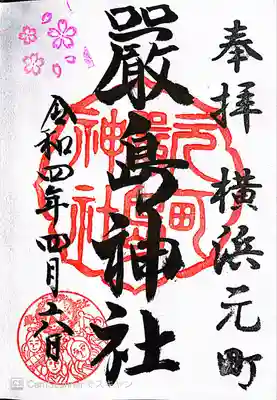 奉拝 横浜元町
嚴島神社
元町
嚴島
神社
令和四年四月六日
CamScanner でスキャン